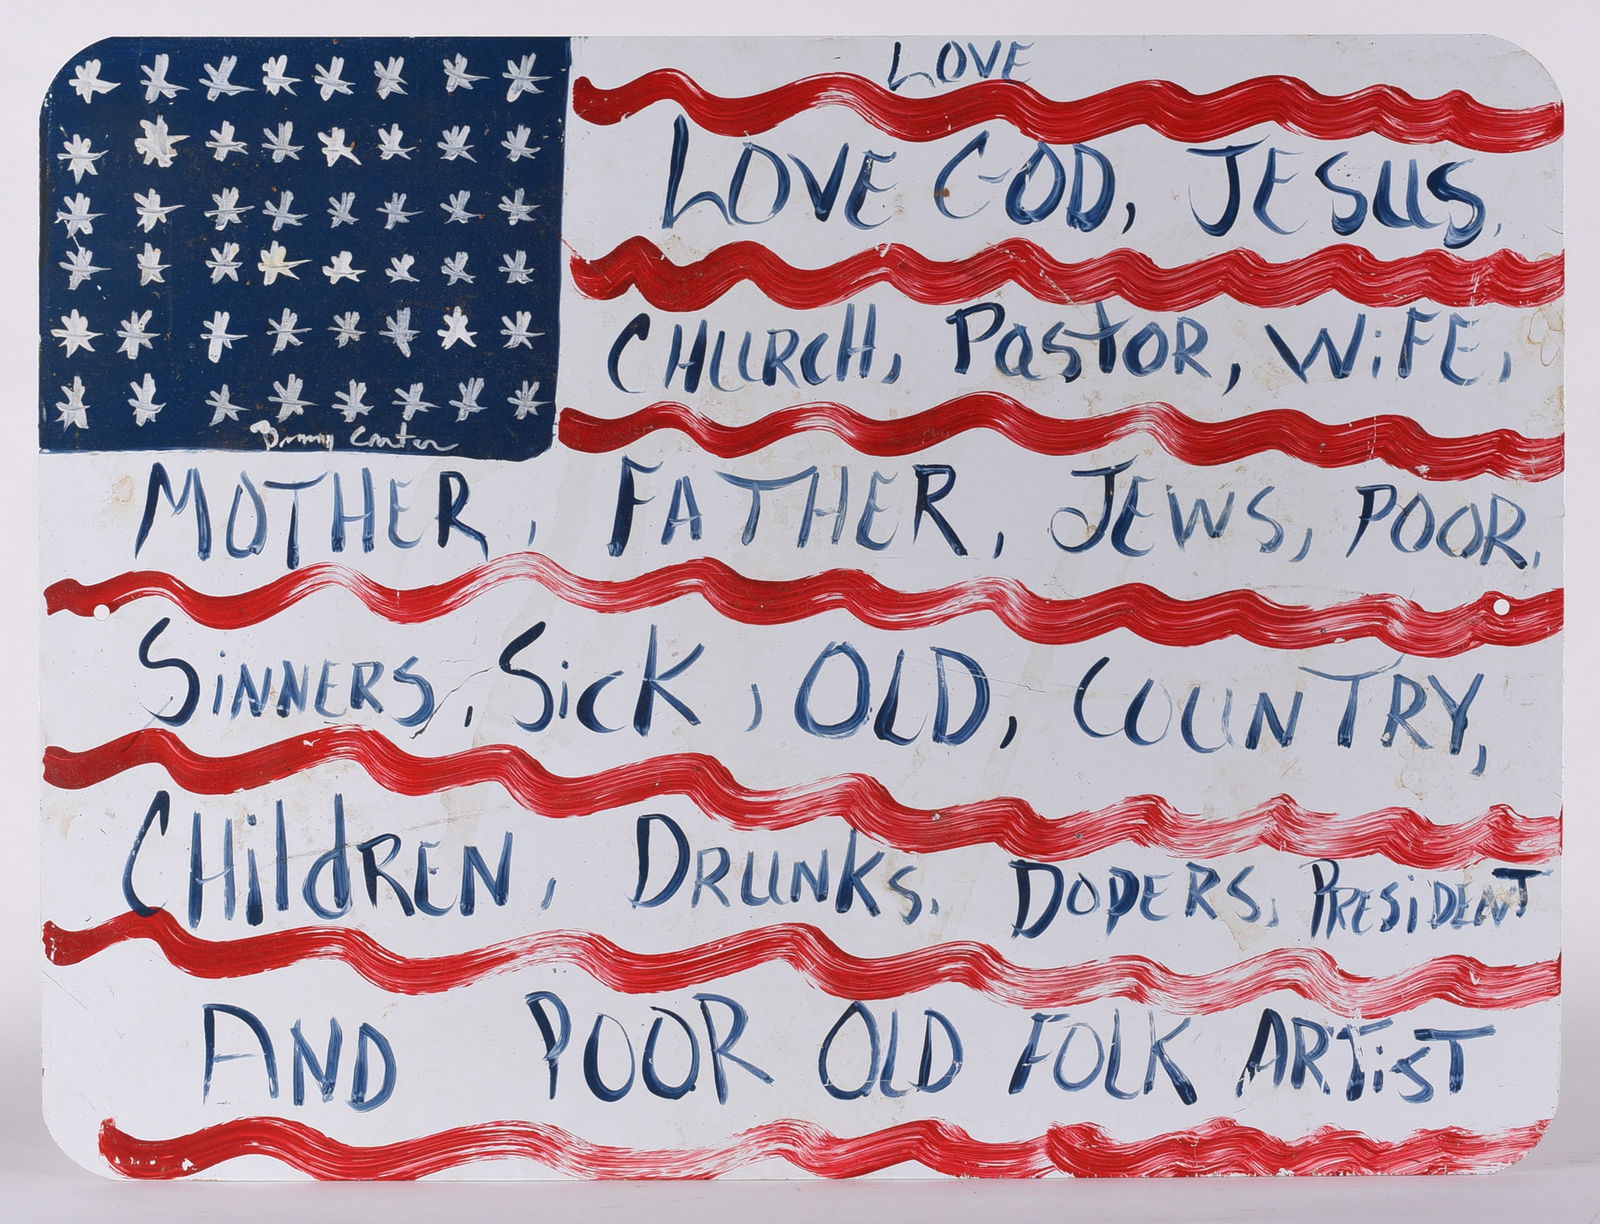 LOVE
LOVE GOD, JESUS,
CHURCH, Pastor, WiFE,
Benny Carter
MOTHER, FATHER, JEWS, POOR,
SiNNERS, SicK, OLD, COUNTRY,
CHildREN, DRUNKS, DOPERS, PRESiDENT
AND POOR OLD FOLK ARTiST